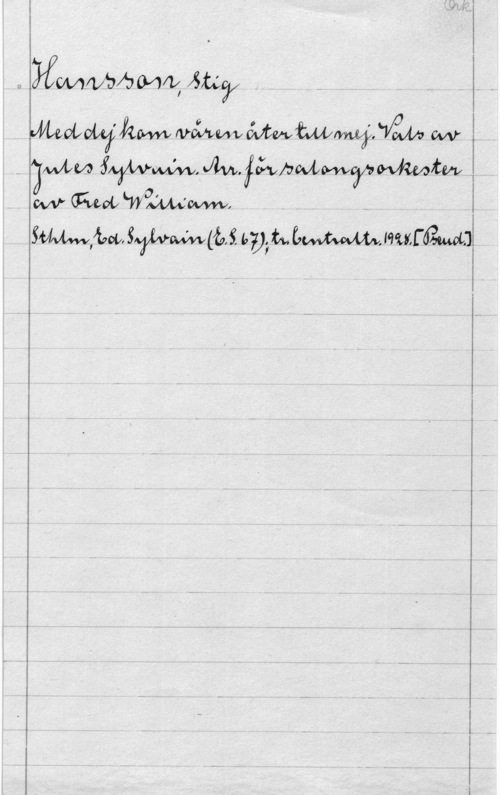 Ork
Hansson, Stig
Med dej kom våren åter till mej. Vals av
Jules Sylvain. Arr. för salongsorkester
av Fred William.
Sthlm, Ed. Sylvain (E.S. 67); tr. Centraltr. 1928. [Pseud.]